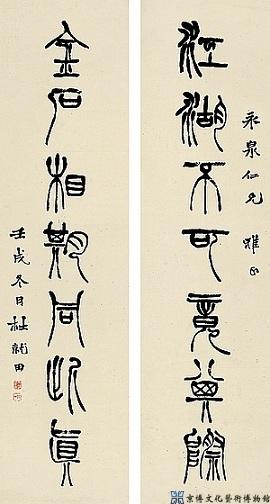 永泉仁兄 雅正
江湖不可竟其際
金石相期同此真
壬戌冬日杜就田
京博文化藝術博物館